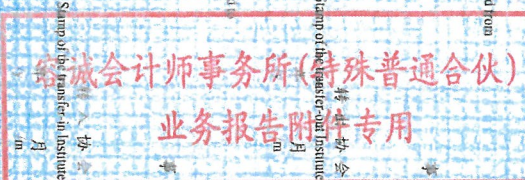 容诚会计师事务所(特殊普通合伙)
业务报告附件专用
Stamp of the transfer-in Institute
Stamp of the transfer-out Institute
转出协会
入协会
月
月